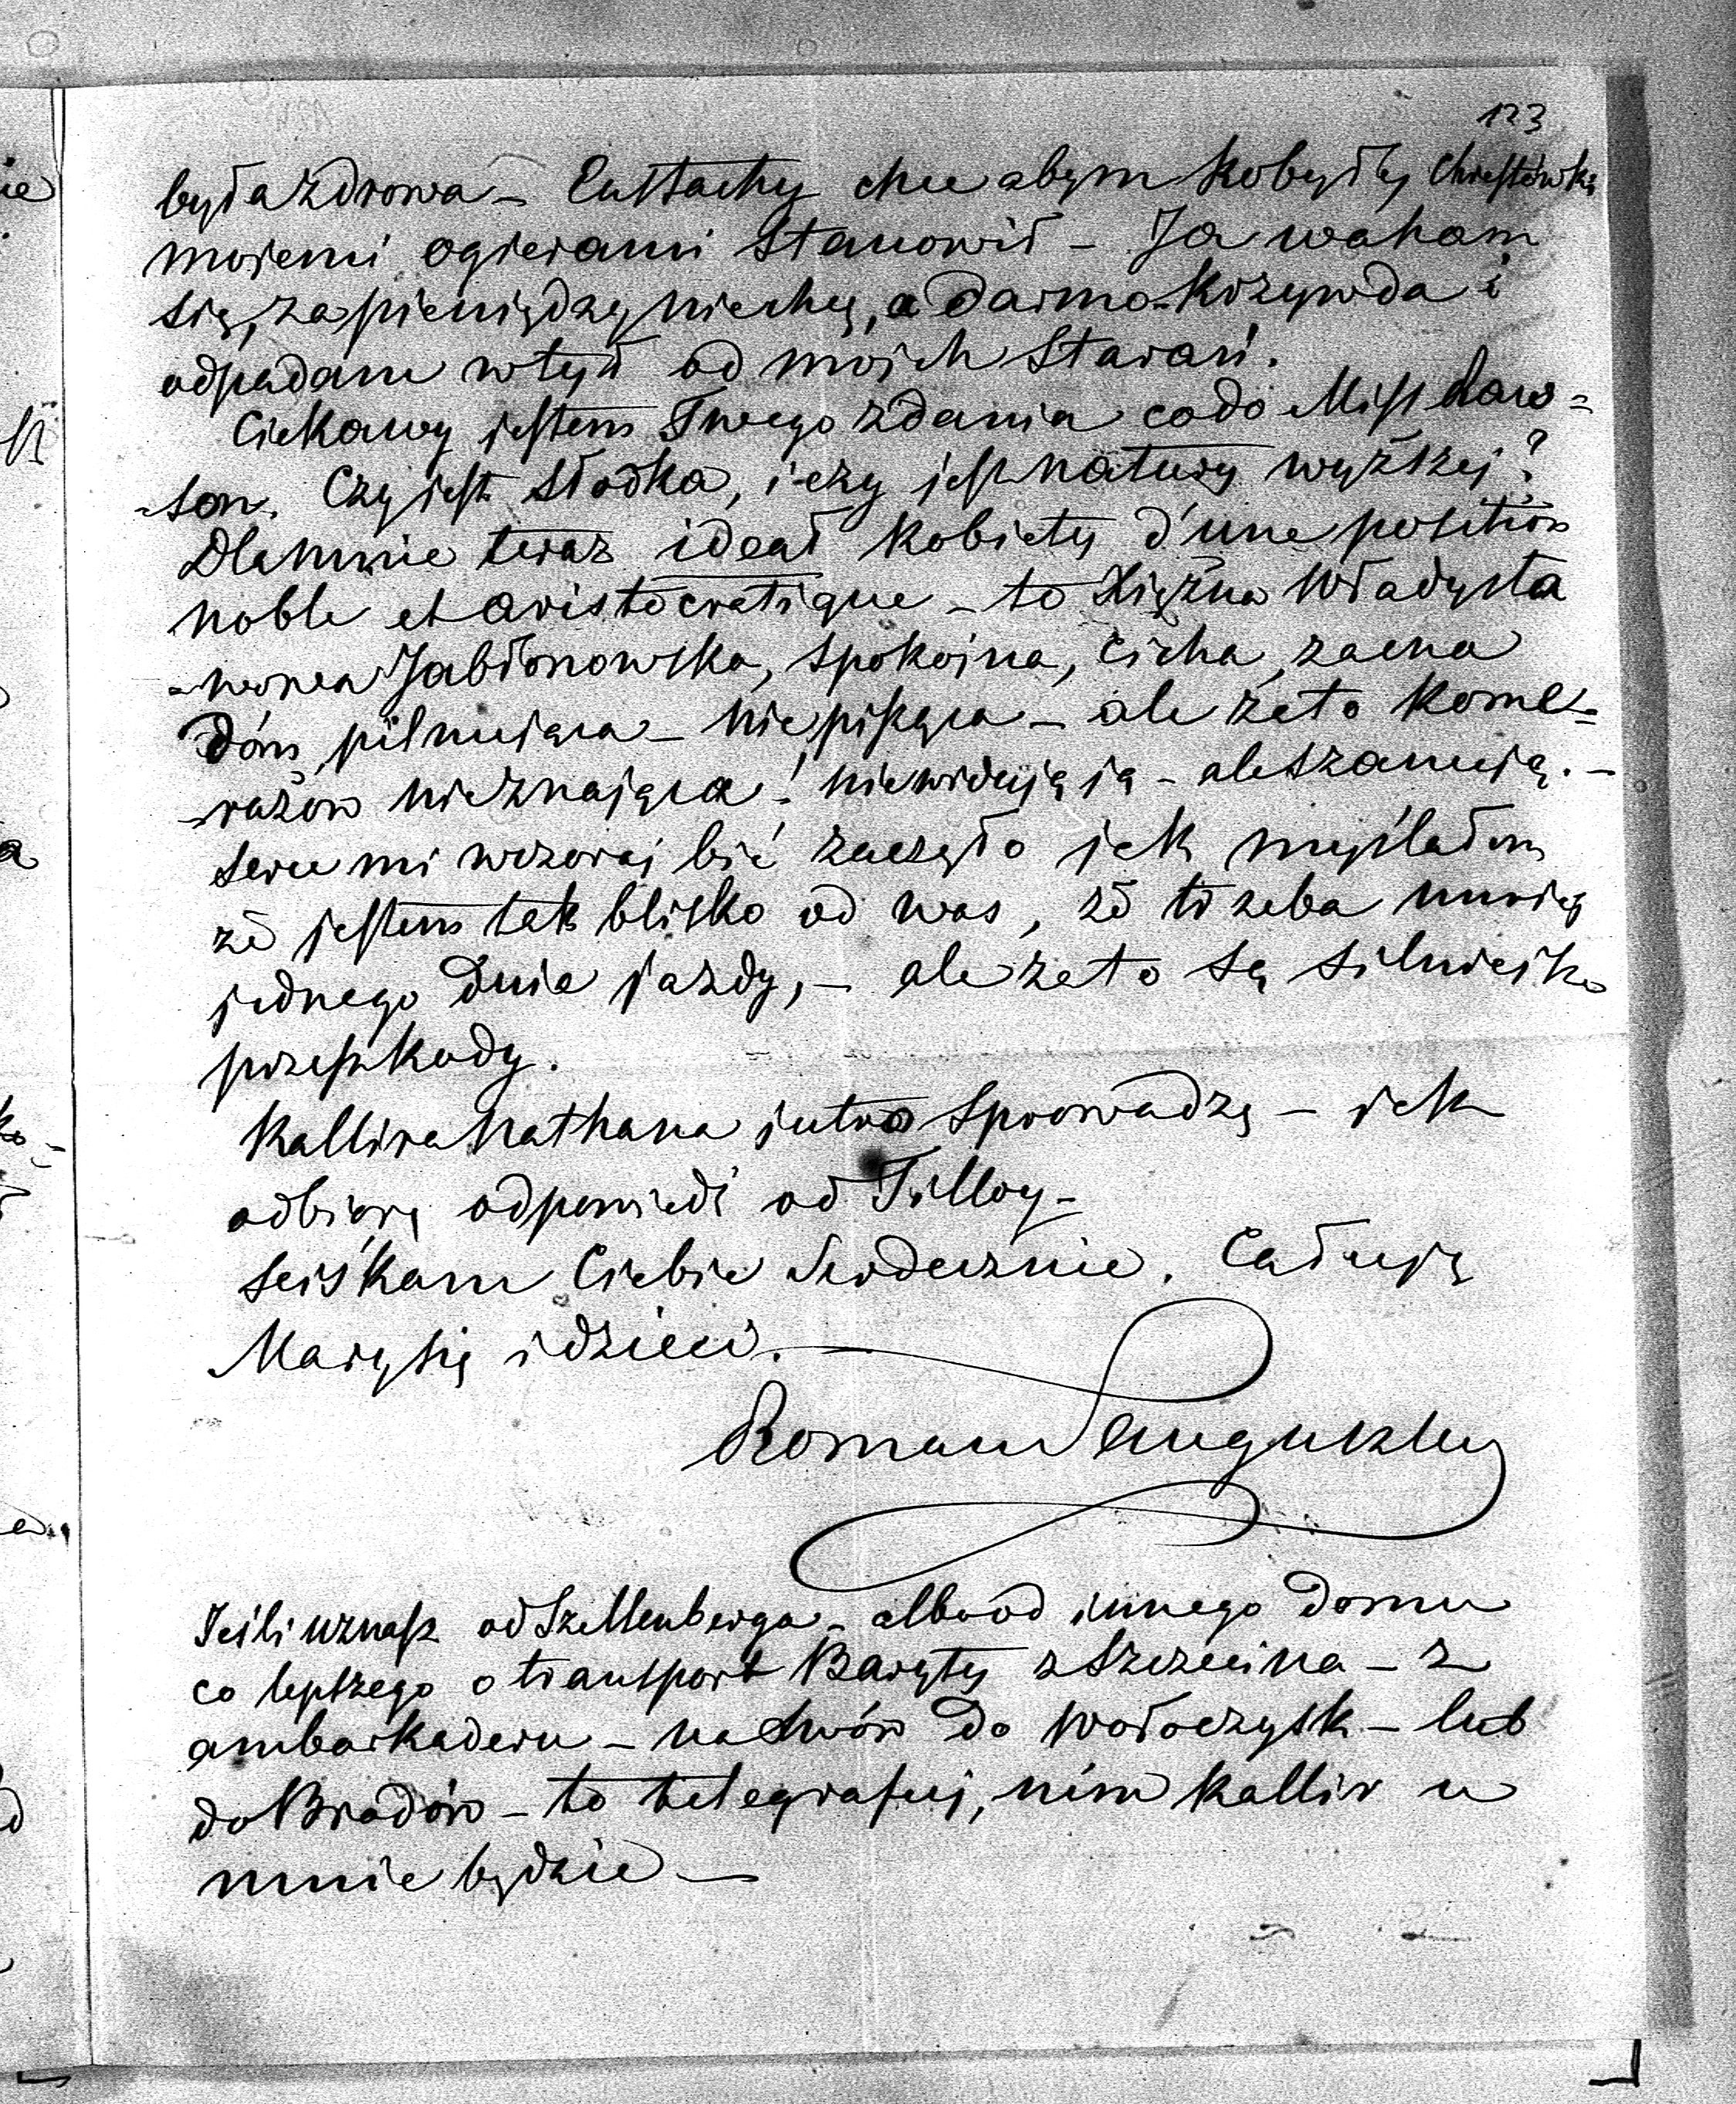 123
była zdrowa – Eustachy chce abym kobyły Chrestówki
mojemi ogierami stanowił – Ja waham
się, za pieniędzy niechcę, a darmo krzywda i
odpadam wtył od moich Starań.
Ciekawy jestem Twego zdania codo Miss Law=
=son. Czy jest słodka, i czy jest natury wyższej?
Dla mnie teraz ideał kobiety d'une position
noble et aristocratique – to Xiężna Władysła
=wowa Jabłonowska, spokojna, cicha, zacna
dom pilnująca – nie pisząca – ale zato kome=
=rażow nieznająca! niewidują ją – ale szanują. –
serce mi wczoraj bić zaczęło jak myślałem
że jestem tak blisko od was, że trzeba mniej
jednego dnia jazdy, – ale zato są silniejsze
przeszkody.
Kallira Nathana jutro sprowadzę – jak
odbiorę odpowiedź od Tilloy –
Sciśkam Ciebie Serdecznie. Całuję
Marysię i dzieci. –
Roman Sanguszko
Jeśli uznasz od Szellenberga – albo od innego domu
co lepszego o transport Baryty z Szczecina – z
ambarkaderu – na Lwów do Wołoczysk – lub
do Brodów – to telegrafuj, nim Kallir u
mnie będzie –